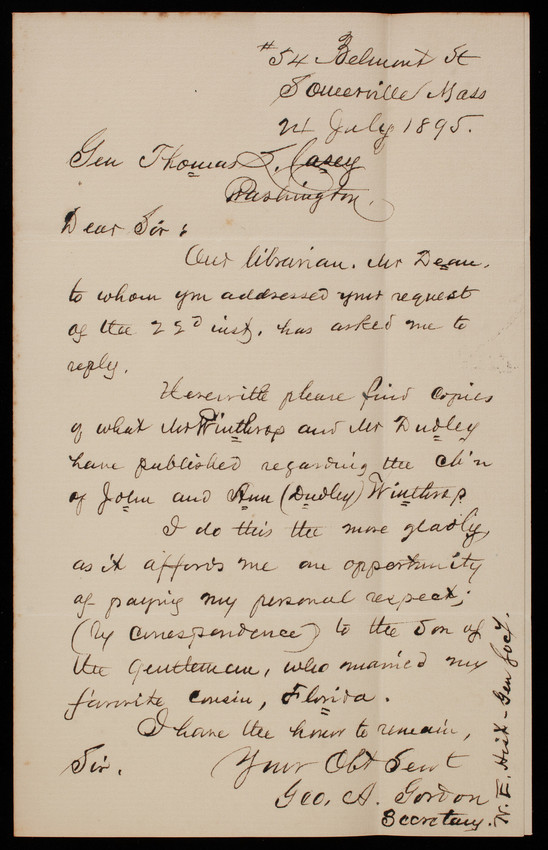 #54 Belmont St
Somerville Mass
24 July 1895.
Gen Thomas L. Casey
Washington.
Dear Sir:
Our librarian, Mr Dean,
to whom you addressed your request
of the 22d inst, has asked me to
reply.
Herewith please find copies
of what Mr Winthrop and Mr Dudley
have published regarding the ch'n
of John and Ann (Dudley) Winthrop.
I do this the more gladly,
as it affords me an opportunity
of paying my personal respects
(by correspondence) to the son of
the gentleman, who married my
favorite cousin, Florida.
I have the honor to remain,
Sir. Your Obt Servt
Geo. A. Gordon
Secretary.
N. E. Hist-Gen Soc'y.